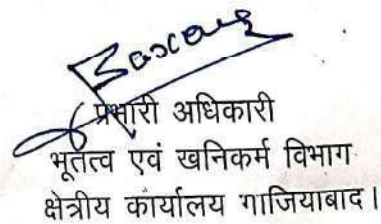 प्रभारी अधिकारी
भूतत्व एवं खनिकर्म विभाग
क्षेत्रीय कार्यालय गाजियाबाद।